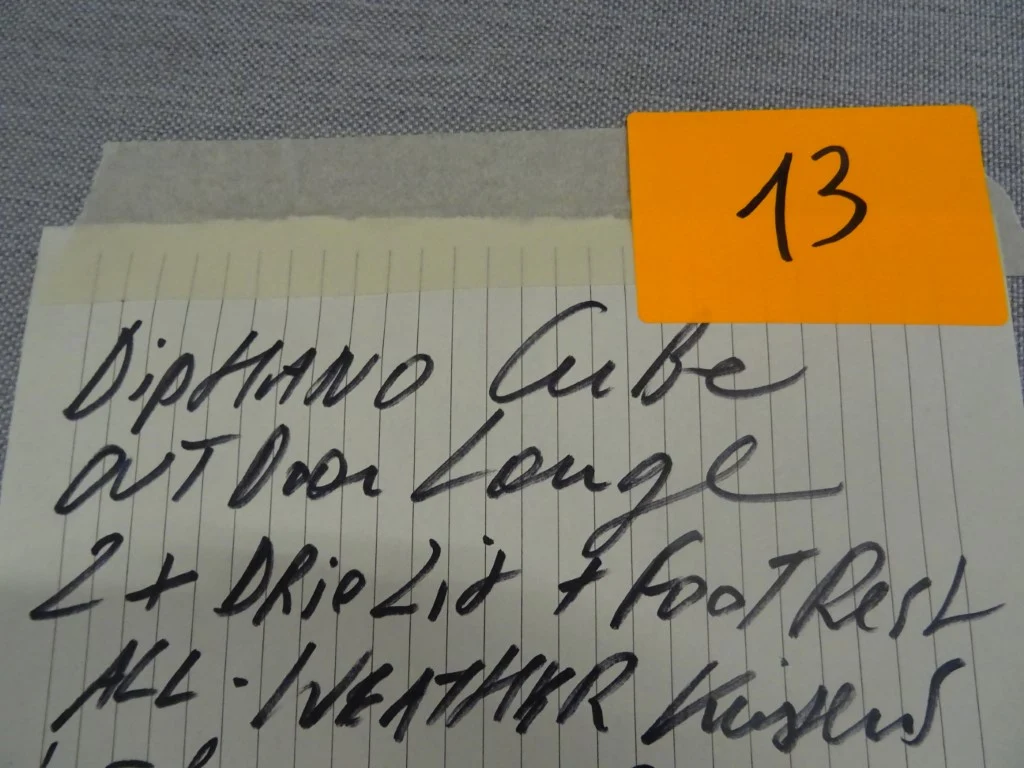 13
DipHANO CuBe
OUTDoor Longe
2 + DRieZid + FooTResT
ALL-WEATHER Kussens